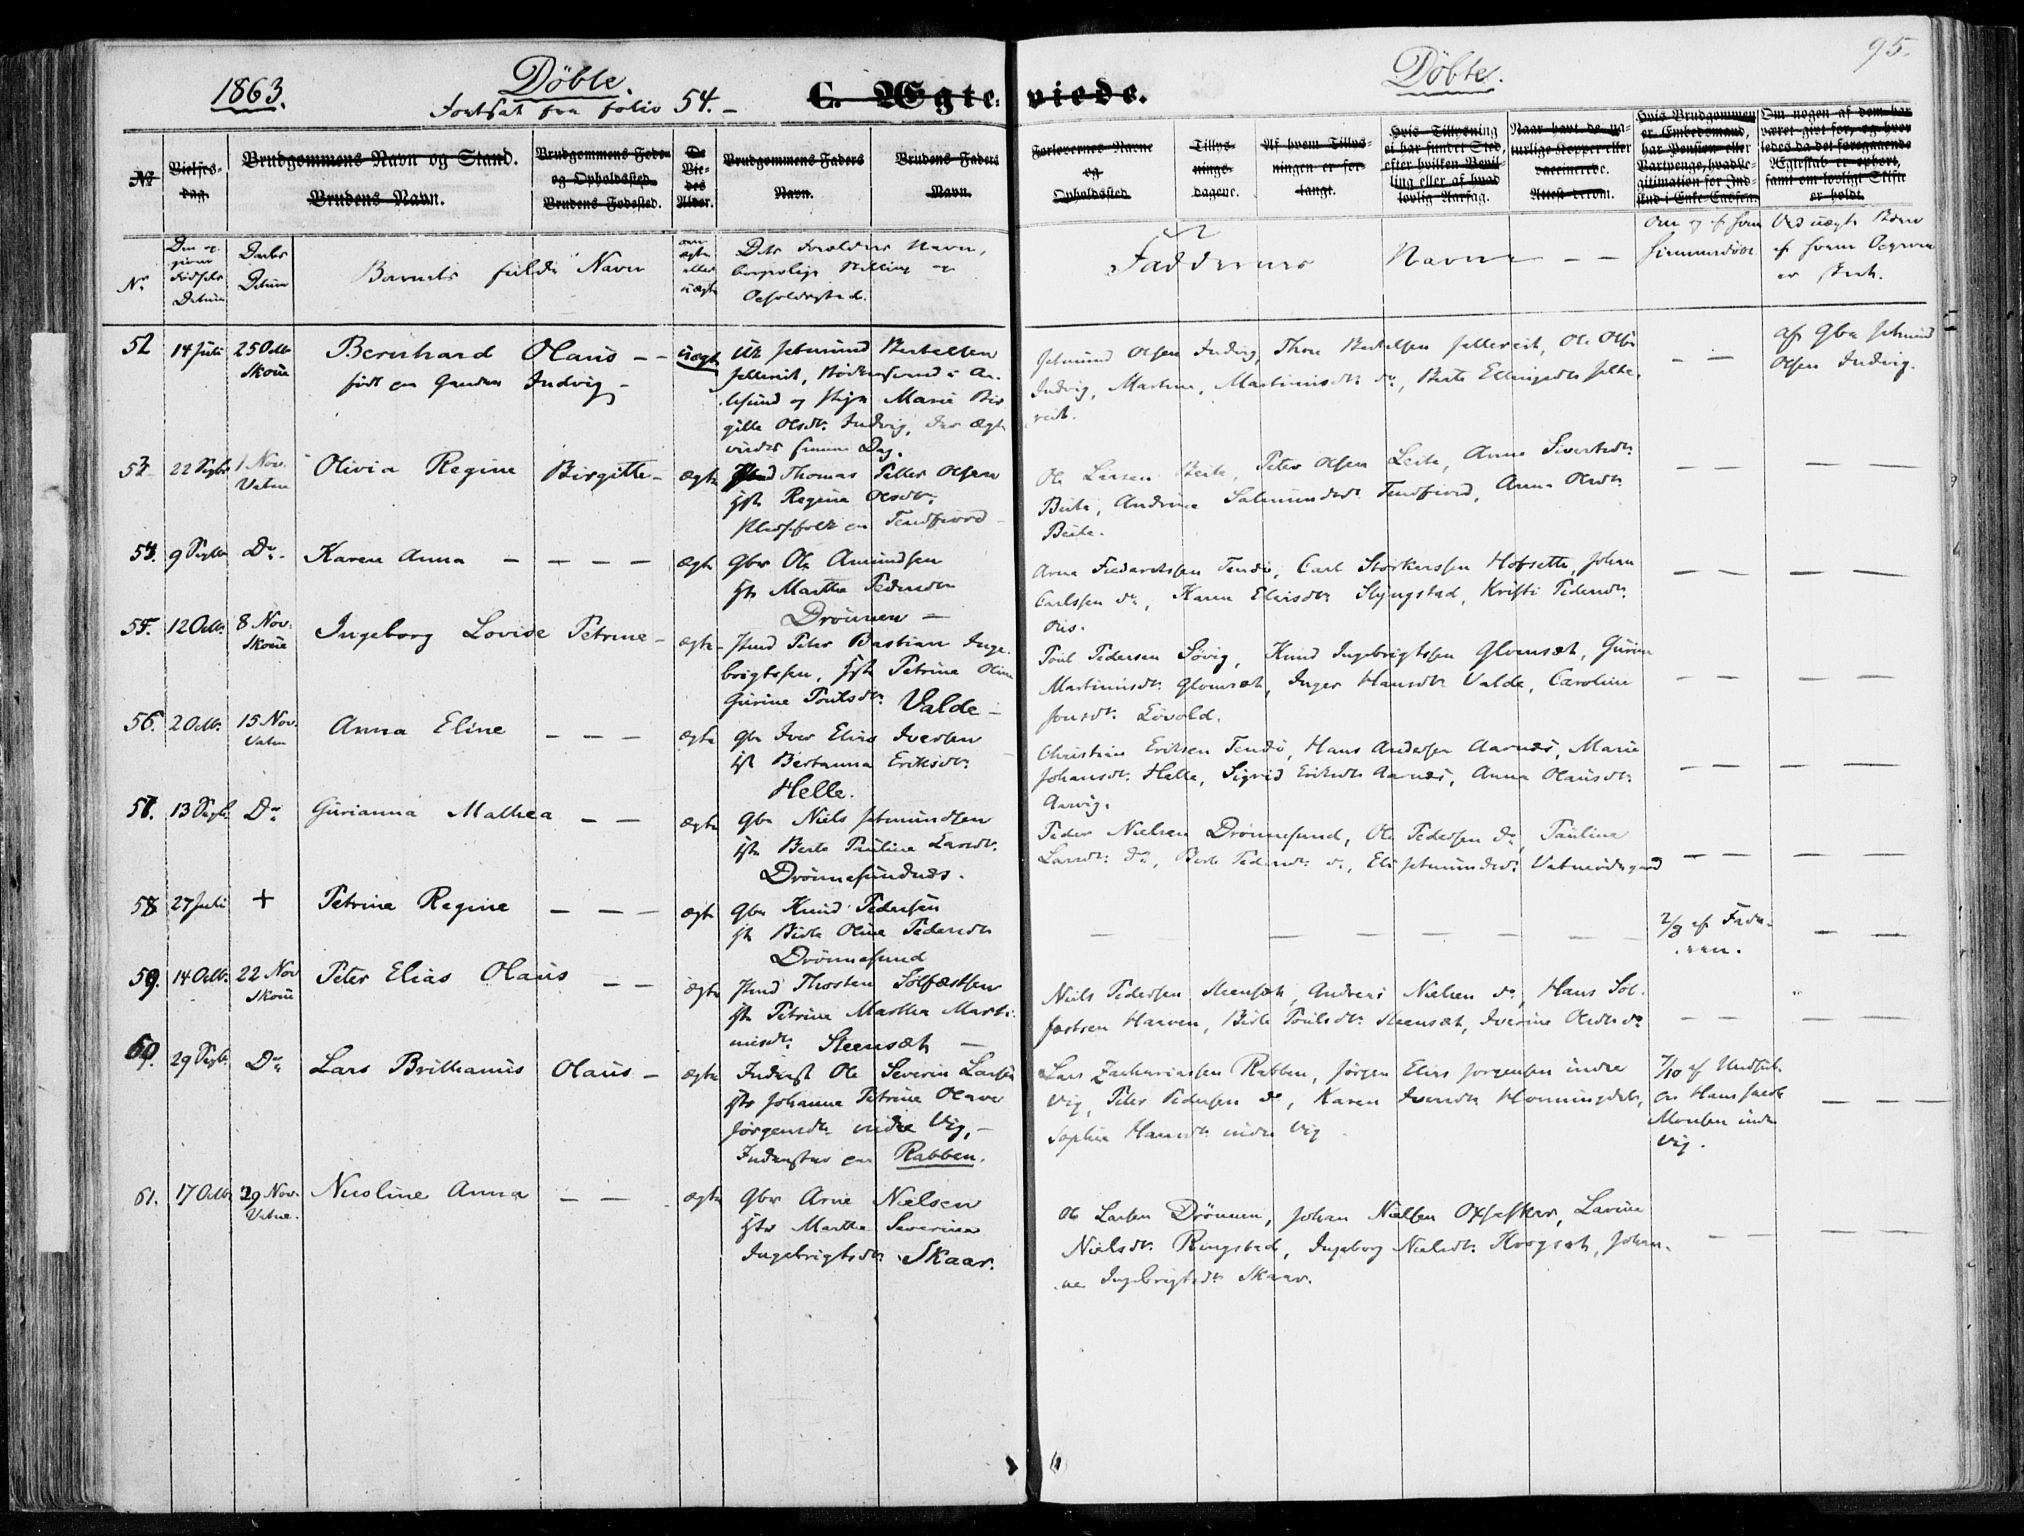 1863.
Döbte.
Fortsat fra folio 54. –
C. Ægte-
viede.
Döbte.
95.
No
Vielses-
dag.
Brudgommens Navn og Stand.
Brudens Navn.
Brudgommens Føde-
og Opholdssted.
Brudens Fødested.
De
Vie-
des
Alder.
Brudgommens Faders
Navn.
Brudens Faders
Navn.
Forlovernes Navne
og
Opholdssted.
Tillys-
nings-
dagene.
Af hvem Tillys-
ningen er for-
langt.
Hvis Tillysning
ei har fundet Sted,
efter hvilken Bevil-
ling eller af hvad
lovlig Aarsag.
Naar havt de na-
turlige Kopper eller
vaccinerede.
Attest derom.
Hvis Brudgommen
er Embedsmand,
har Pension eller
Vartpenge, hvad Le-
gitimation for Ind-
skud i Enke-Cassen.
Om nogen af dem har
været gift før, og hvor-
ledes da det foregaaende
Ægteskab er ophørt,
samt om lovligt Skifte
er holdt.
No
Fødsels
Datum
Daabs
Datum
Barnets fulde Navn
ægte
eller
uægte
Forældres Navn,
borgerlige Stilling og
Opholdssted.
Faddernes Navne – –
Om og af hvem
hjemmedöbt
Ved uægte Börn
af hvem Opgiven
er skeet.
52 14 Juli 25 Octb Skoue Bernhard Olaus – – uægte
född paa Gaarden Indvig –
Marie Bir-
gitte Olsdr. Indvig,
Dag.
Olsen Indvig, Thore Bertelsen Ole Olsen
Indvig, Martine Martinusdr. do, Berte Ellingsdr
– –
Olsen Indvig.
53 22 Septbr 1 Nov. Vatne Olivia Regine Birgitte – ægte
Thomas Peller Olsen
Regine Olsdr.
Pladsfolk paa Tendfiord –
Ole Larsen Beite, Peter Olsen Leite, Anne Sivertsdr.
Beite, Andrine Salmundsdr Tendfiord, Anna Olsdr.
Beite.
– – – –
54. 9 Septbr Do – Karen Anna – – – – ægte
Gbr Ole Amundsen
Martha Pedersdr
Drönnen –
Arne Frederiksen Tendö, Carl Störkersen Hofsette, Johan
Carlssen do, Karen Eliasdr Slyngstad, Kristi Pedersdr.
– – – –
55. 12 Octb. 8 Nov. Skoue Ingeborg Lovise Petrine – ægte –
Peter Bastian Inge-
brigtssen, Petrine Oline
Gurine Poulsdr. Valde –
Poul Pedersen Sövig, Knud Ingebrigtssen Glomset, Gurine
Martinusdr. Glomset, Inger Hansdr. Valde, Caroline
Jonsdr. Lövold.
– – – –
56. 2 Octb. 15 Nov. Vatne Anna Eline – – – ægte
Gbr Iver Elias Iversen
Bertanna Eriksdr.
Helle.
Christian Eriksen Tendö, Hans Andersen Aarnes, Marie
Johansdr. Helle, Sigrid Eriksdr Aarnes, Anna Olausdr.
Aarvig.
– – – –
57. 13 Septbr Do Gurianna Mathea – – ægte
Gbr Niels Jetmundsen
Berte Pauline Larsdr.
Drönnesundnes.
Peder Nielsen Drönnesund, Ole Pedersen do, Pauline
Larsdr. do, Berte Pedersdr. do, Eli Jetmundsdr. Vatneödegaard
– – – –
58 27 Juli + Petrine Regine – – – ægte
Gbr Knud Pedersen
Berte Oline Pedersdr
Drönnesund
– – – – – –
2/8 af Fade-
ren.
– –
59. 14 Octb. 22 Nov Skoue Peter Elias Olaus – – ægte
Thosten Solfæstsen
Petrine Martha Marti-
nusdr. Steensæt –
Niels Pedersen Steensæt, Andreas Nielsen do, Hans Sol-
fæstsen Haaven, Berte Poulsdr. Steensæt, Iverine Olsdr do
– – – –
60. 29 Septbr. Do Lars Brithanius Olaus – ægte
Inderst Ole Severin Larsen
Johanne Petrine Olave
Jörgensdr. indre Vig, –
Inderster paa Rabben.
Lars Zachariassen Rabben, Jörgen Elias Jörgensen indre
Vig, Peter Pedersen do, Karen Iversdr Honningdal,
Sophie Hansdr indre Vig.
7/10 af
Hans
Monsen indre
Vig.
– – –
61. 17 Octb 29 Nov. Vatne. Nicoline Anna – – ægte
Gbr Arne Nielsen
Martha Severine
Ingebrigtsdr. Skaar.
Ole Larsen Drönnen, Johan Nielsen Lavine
Nielsdr. Ringstad, Ingeborg Nielsdr. Krogset, Johan-
ne Ingebrigtsdr Skaar.
– – – –